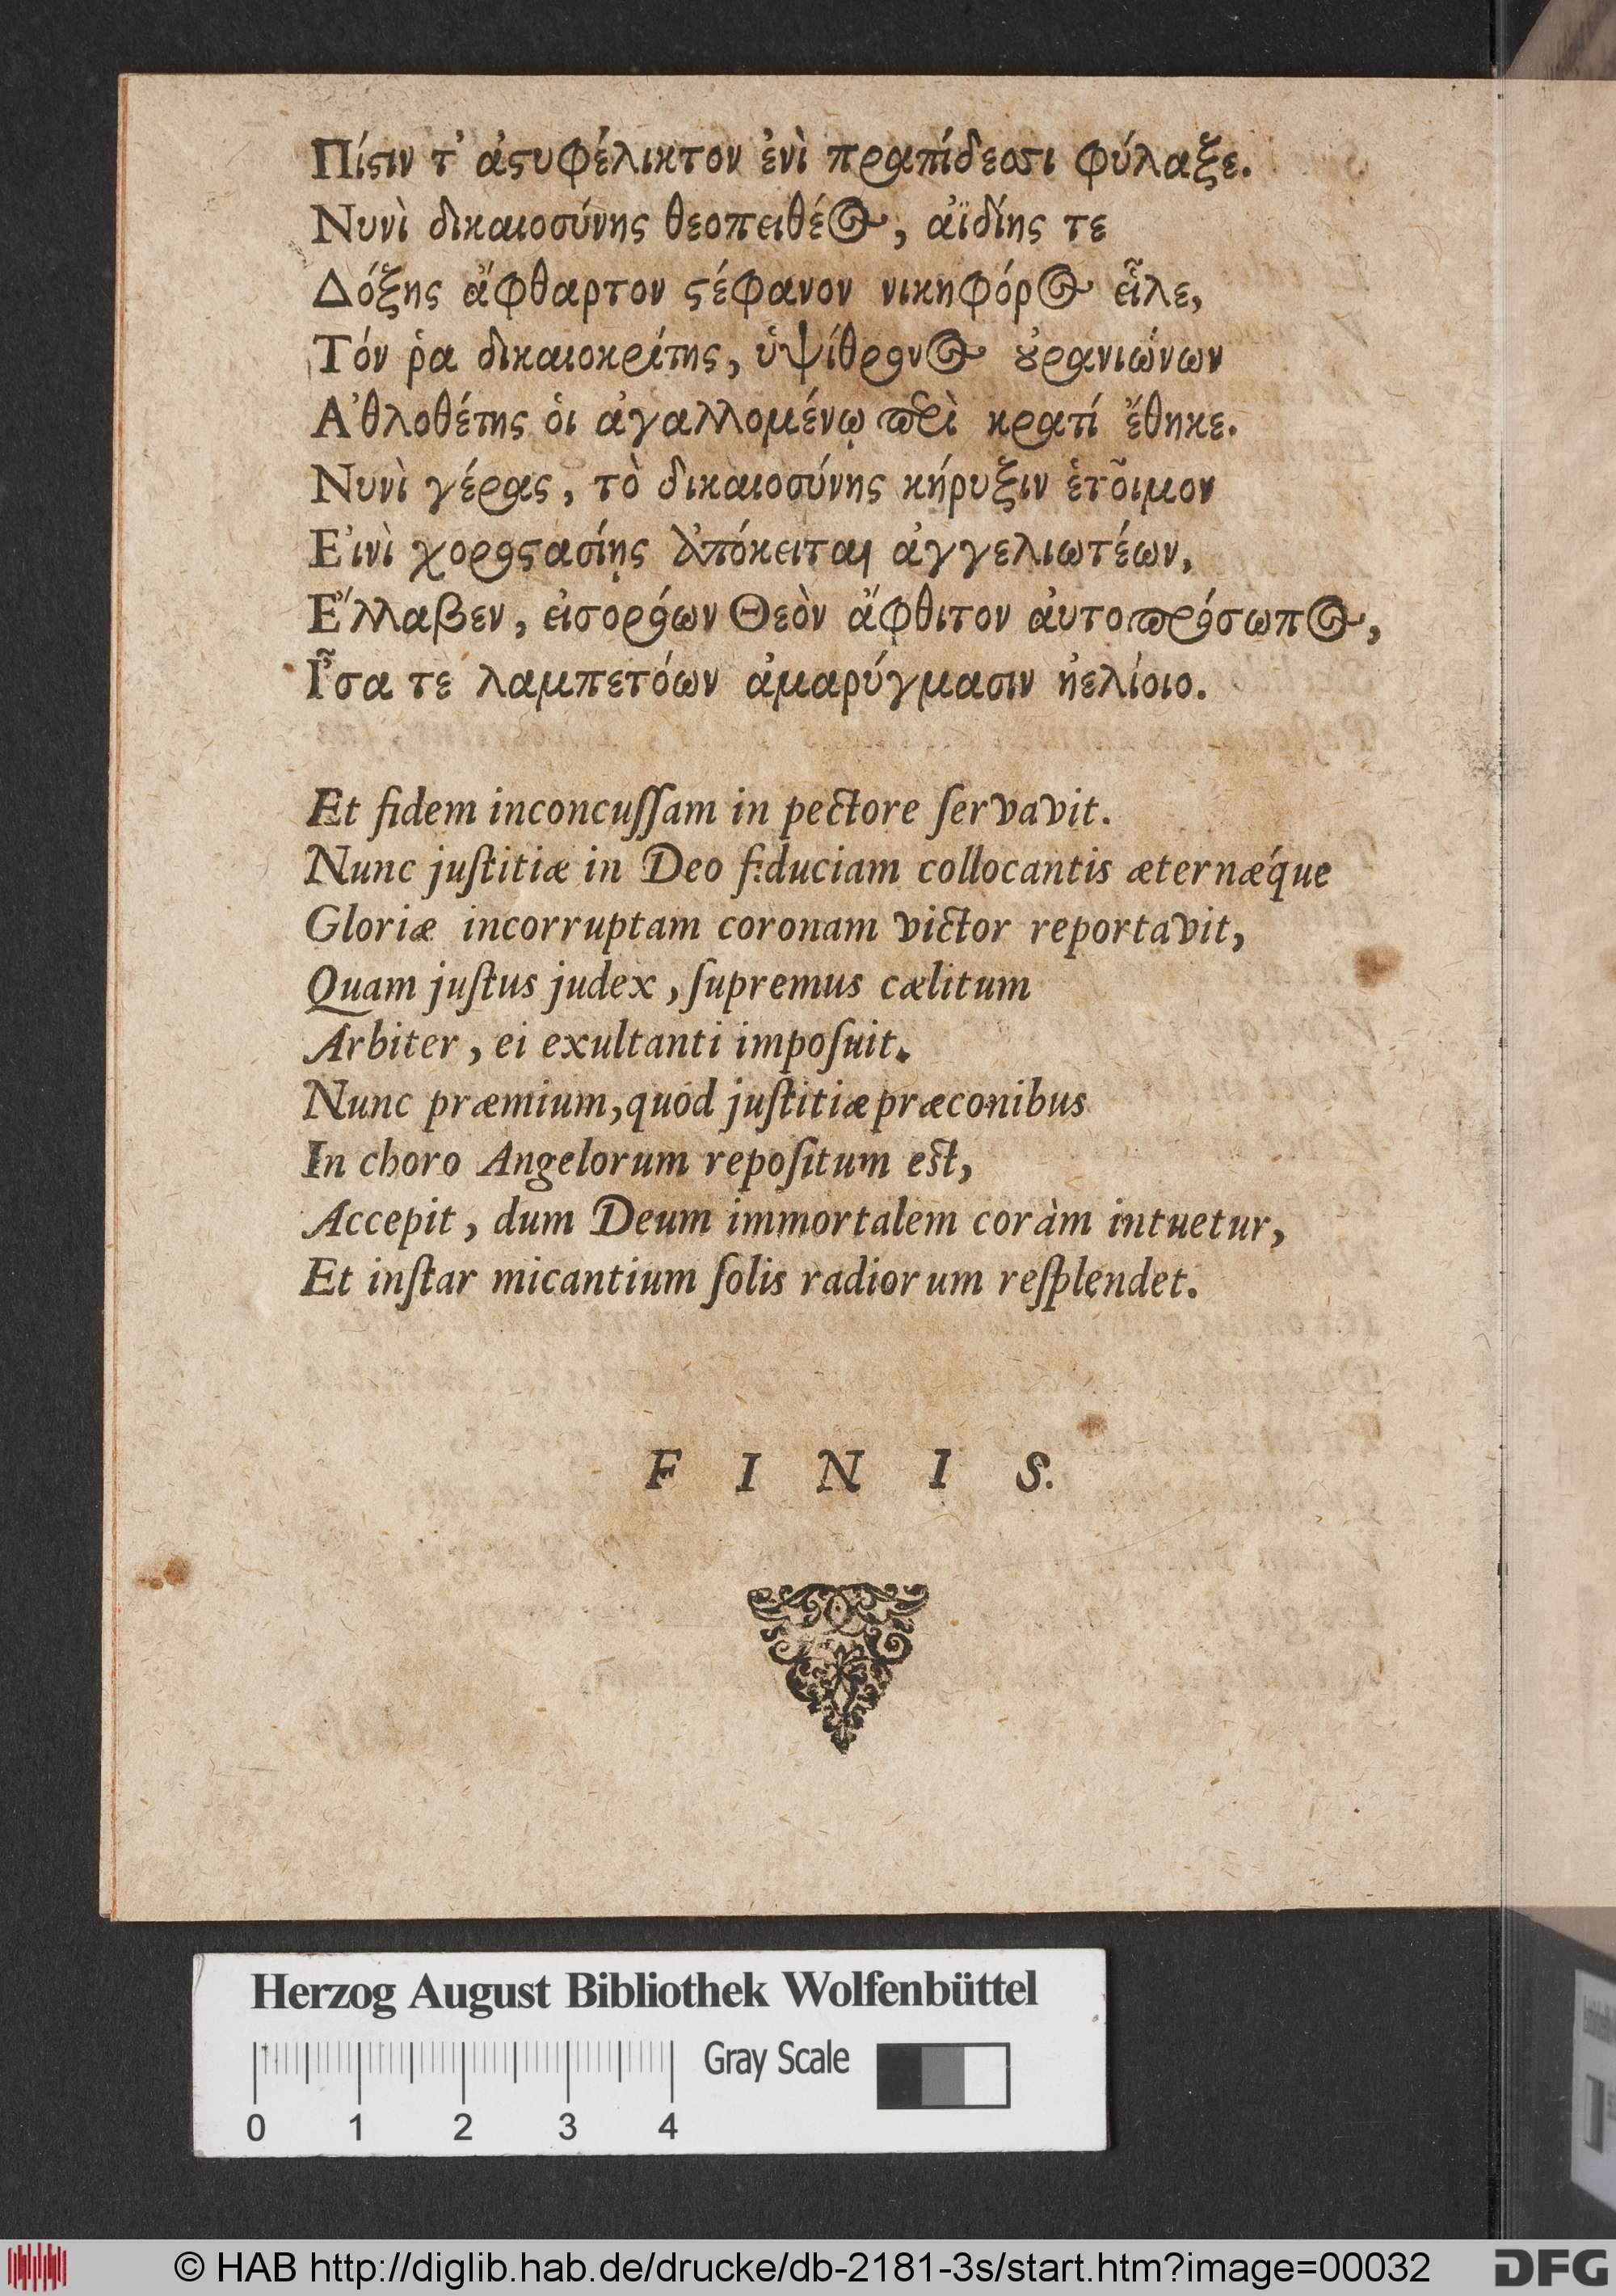 Πίϛιν τ' ἀϛυφέλικτον ἐνὶ πραπίδεσσι φύλαξε.
Νυνὶ δικαιοσύνης θεοπειθέος, ἀϊδίης τε
Δόξης ἄφθαρτον ϛέφανον νικηφόρος εἷλε,
Τόν ῥα δικαιοκρίτης, ὑψίθρονος ȣ̓ρανιώνων
Α'θλοθέτης ὁι ἀγαλλομένῳ περὶ κρατί ἔθηκε.
Νυνὶ γέρας, τὸ δικαιοσύνης κήρυξιν ἑτοῖμον
Ε'ινὶ χοροϛασίῃς ἀπόκειται ἀγγελιωτέων,
Ε῎λλαβεν, εἰσορόων Θεὸν ἄφθιτον ἀυτοπρόσωπος,
Ι῏σα τε λαμπετόων ἀμαρύγμασιν ἠελίοιο.
Et fidem inconcuſſam in pectore ſervavit.
Nunc juſtitiæ in Deo fiduciam collocantis æternǽque
Gloriæ incorruptam coronam victor reportavit,
Quam juſtus judex, ſupremus cælitum
Arbiter, ei exultanti impoſuit.
Nunc præmium, quód juſtitiæ præconibus
In choro Angelorum repoſitum eſt,
Accepit, dum Deum immortalem coràm intuetur,
Et inſtar micantium ſolis radiorum reſplendet.
F I N I S.
Herzog August Bibliothek Wolfenbüttel
Gray Scale
0 1 2 3 4
© HAB http://diglib.hab.de/drucke/db-2181-3s/start.htm?image=00032
DFG